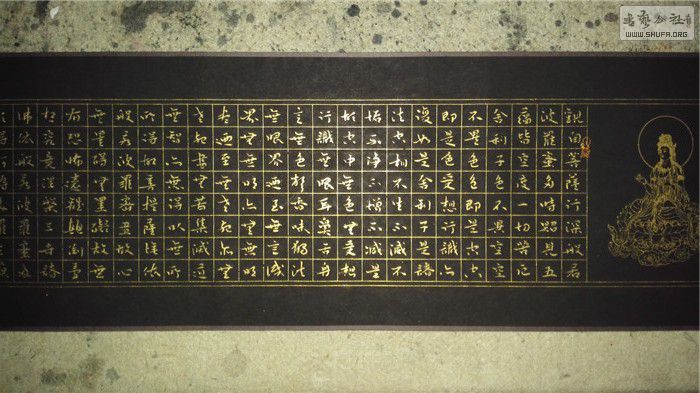 觀自菩薩行深般若
波羅蜜多時照見五
蘊皆空度一切苦厄
舍利子色不異空空
不異色色即是空空
即是色受想行識亦
復如是舍利子是諸
法空相不生不滅不
垢不淨不增不減是
故空中無色無受想
行識無眼耳鼻舌身
意無色聲香味觸法
無眼界乃至無意識
界無無明亦無無明
盡乃至無老死亦無
老死盡無苦集滅道
無智亦無得以無
所得故菩提薩埵依
般若波羅蜜多故心
無罣礙無罣礙故無
有恐怖遠離顛倒夢
想究竟涅槃三世諸
佛依般若波羅蜜多
書藝公社
WWW.SHUFA.ORG